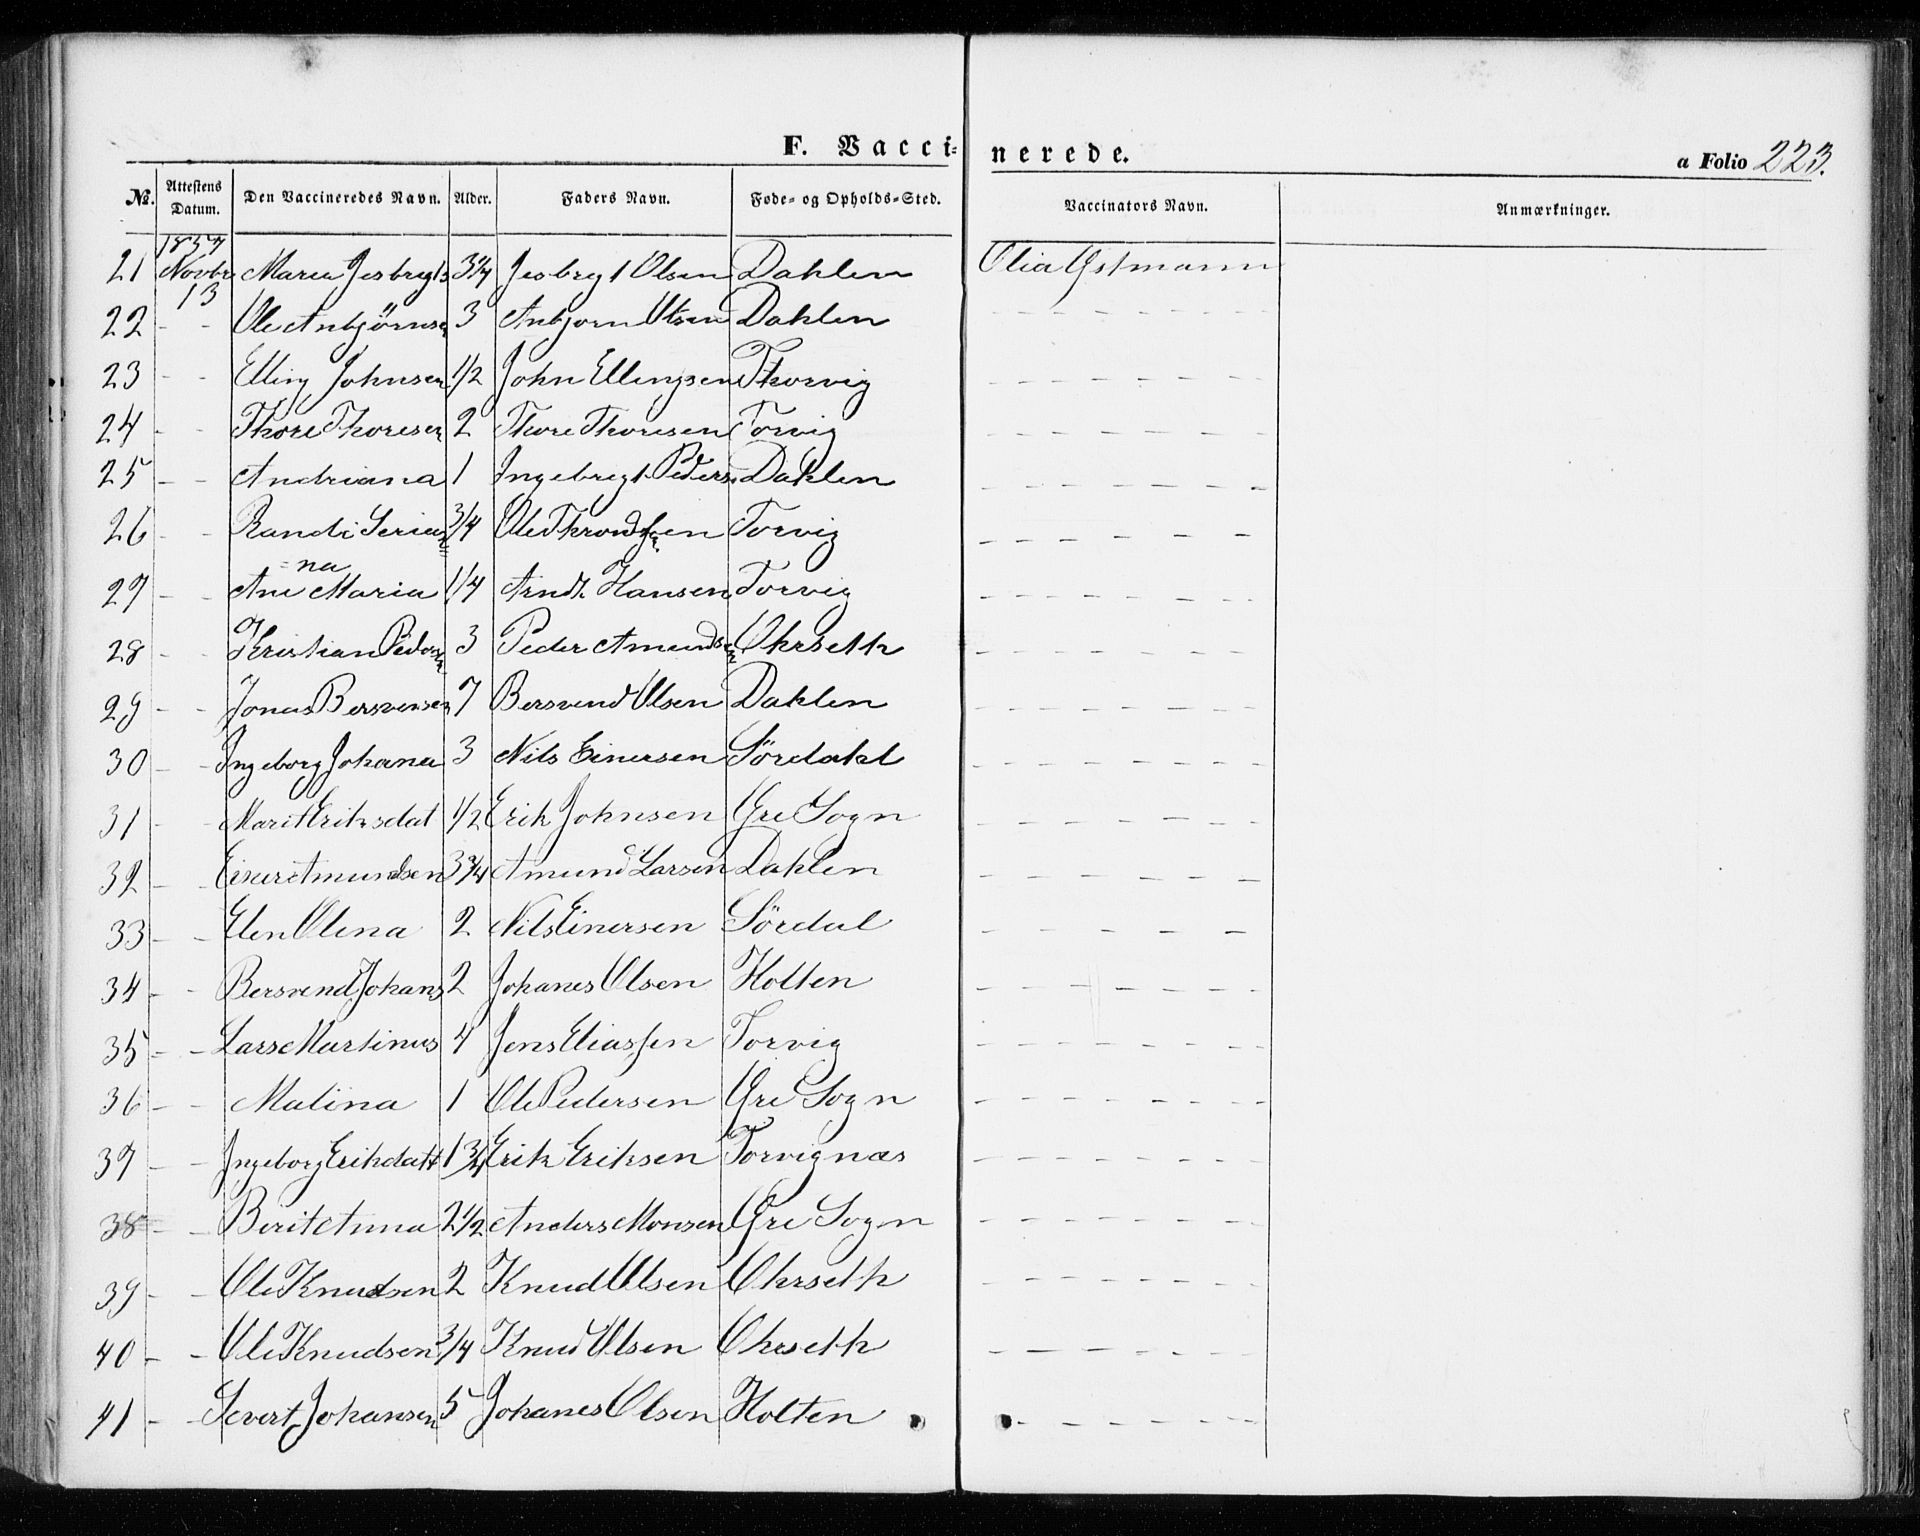 F. Vacci- nerede.
a Folio 223.
No. Attestens Datum. Den Vaccineredes Navn. Alder. Faders Navn. Føde- og Opholds-Sted. Vaccinators Navn. Anmærkninger.
1857
21 Novbr 13 Maren Jesbrygts 3 1/4 Jesbrygt Olsen Dahlen Olia Østmann
22 - - Ole Anbjørnsen 3 Anbjorn Olsen Dahlen - - - - - -
23 - - Elling Johnsen 1/2 John Ellingsen Thorvig - - - - - -
24 - - Thore Thoresen 2 Thore Thoresen Torvig - - - - - -
25 - - Andriana 1 Ingebregt Peders. Dahlen - - - - - -
26 - - Randi Seriana 3/4 Ole Throndsen Torvig - - - - - -
27 - - Ane Maria 1/4 Arndt Hansen Torvig - - - - - -
28 - - Kristian Peders 3 Peder Amundsen Ohrseth - - - - - -
29 - - Jonas Bersvensen 7 Bersvend Olsen Dahlen - - - - - -
30 - - Ingeborg Johana 3 Nils Einersen Sördahl - - - - - -
31 - - Marit Eriksdat 1/2 Erik Johnsen Øre Sogn - - - - - -
32 - - Einer Amundsen 3 3/4 Amund Larsen Dahlen - - - - - -
33 - - Elen Olena 2 Nils Einersen Sördal - - - - - -
34 - - Bersvend Johans 2 Johanes Olsen Holten - - - - - -
35 - - Lars Martinus 4 Jens Eliassen Torvig - - - - - -
36 - - Malina 1 Ole Pedersen Øre Sogn - - - - - -
37 - - Ingeborg Erikdatt 1 3/4 Erik Eriksen Torvignæs - - - - - -
38 - - Berit Anna 2 1/2 Anders Monsen Øre Sogn - - - - - -
39 - - Ole Knudsen 2 Knud Olsen Ohrseth - - - - - -
40 - - Ole Knudsen 3/4 Knud Olsen Ohrseth - - - - - -
41 - - Severt Johansen 5 Johanes Olsen Holten - - - - - -